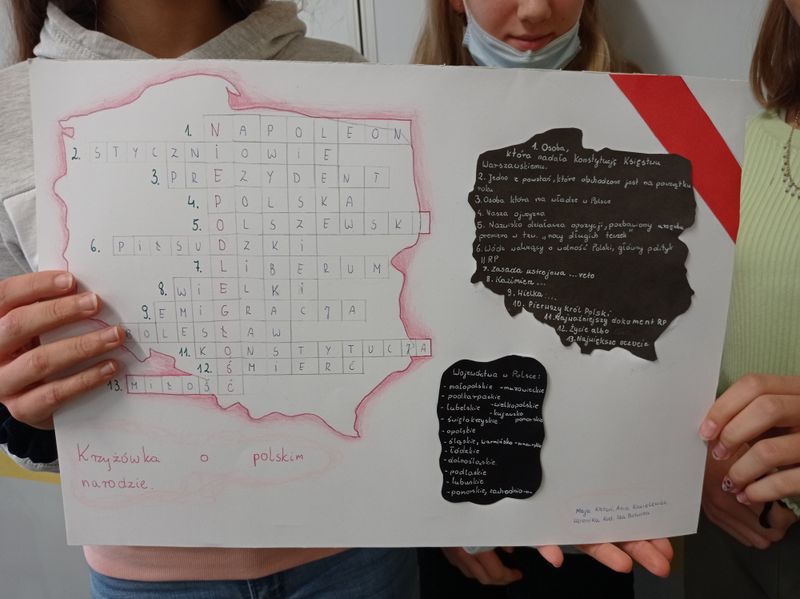 1. NAPOLEON
2. STYCZNIOWIE
3. PREZYDENT
4. POLSKA
5. OLSZEWSKI
6. PIŁSUDZKI
7. LIBERUM
8. WIELKI
9. EMIGRACJA
BOLESŁAW
11. KONSTYTUCJA
12. ŚMIERĆ
13. MIŁOŚĆ
Krzyżówka o polskim
narodzie.
1. Osoba,
która nadała Konstytucję Księstwu
Warszawskiemu.
2. Jedno z powstań, które obchodzone jest na początku
roku
3. Osoba która ma władze w Polsce
4. Nasza ojczyzna
5. Nazwisko działacza opozycji, pozbawiony urzędu
premiera w tzw. "nocy długich teczek"
6. Wódz walczący o wolność Polski, główny polityk
II RP
7. Zasada ustrojowa ... veto
8. Kazimierz ...
9. Wielka ...
10. Pierwszy król Polski
11. Najważniejszy dokument RP
12. Życie albo
13. Największe uczucie
Województwa w Polsce:
- małopolskie - mazowieckie
- podkarpackie
- lubelskie - wielkopolskie
- świętokrzyskie - kujawsko pomorskie
- opolskie
- śląskie, warmińsko-mazurskie
- łódzkie
- dolnośląskie
- podlaskie
- lubuskie
- pomorskie, zachodnio-
Maja Anna